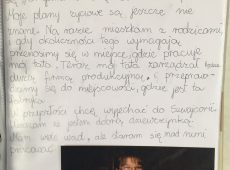 Moje plany życiowe są jeszcze nie
znane. Na razie mieszkam z rodzicami,
i gdy okoliczności tego wymagają
przenosimy się w miejsce, gdzie pracuje
mój tata. Teraz mój tata zarządzał będzie
dużą firmą produkcyjną, i przeprowa-
dzimy się do miejscowości, gdzie jest ta
fabryka.
W przyszłości chcę wyjechać do
Uważam że jestem dobrą dziewczynką.
Mam wiele wad, ale staram się nad nimi
pracować.